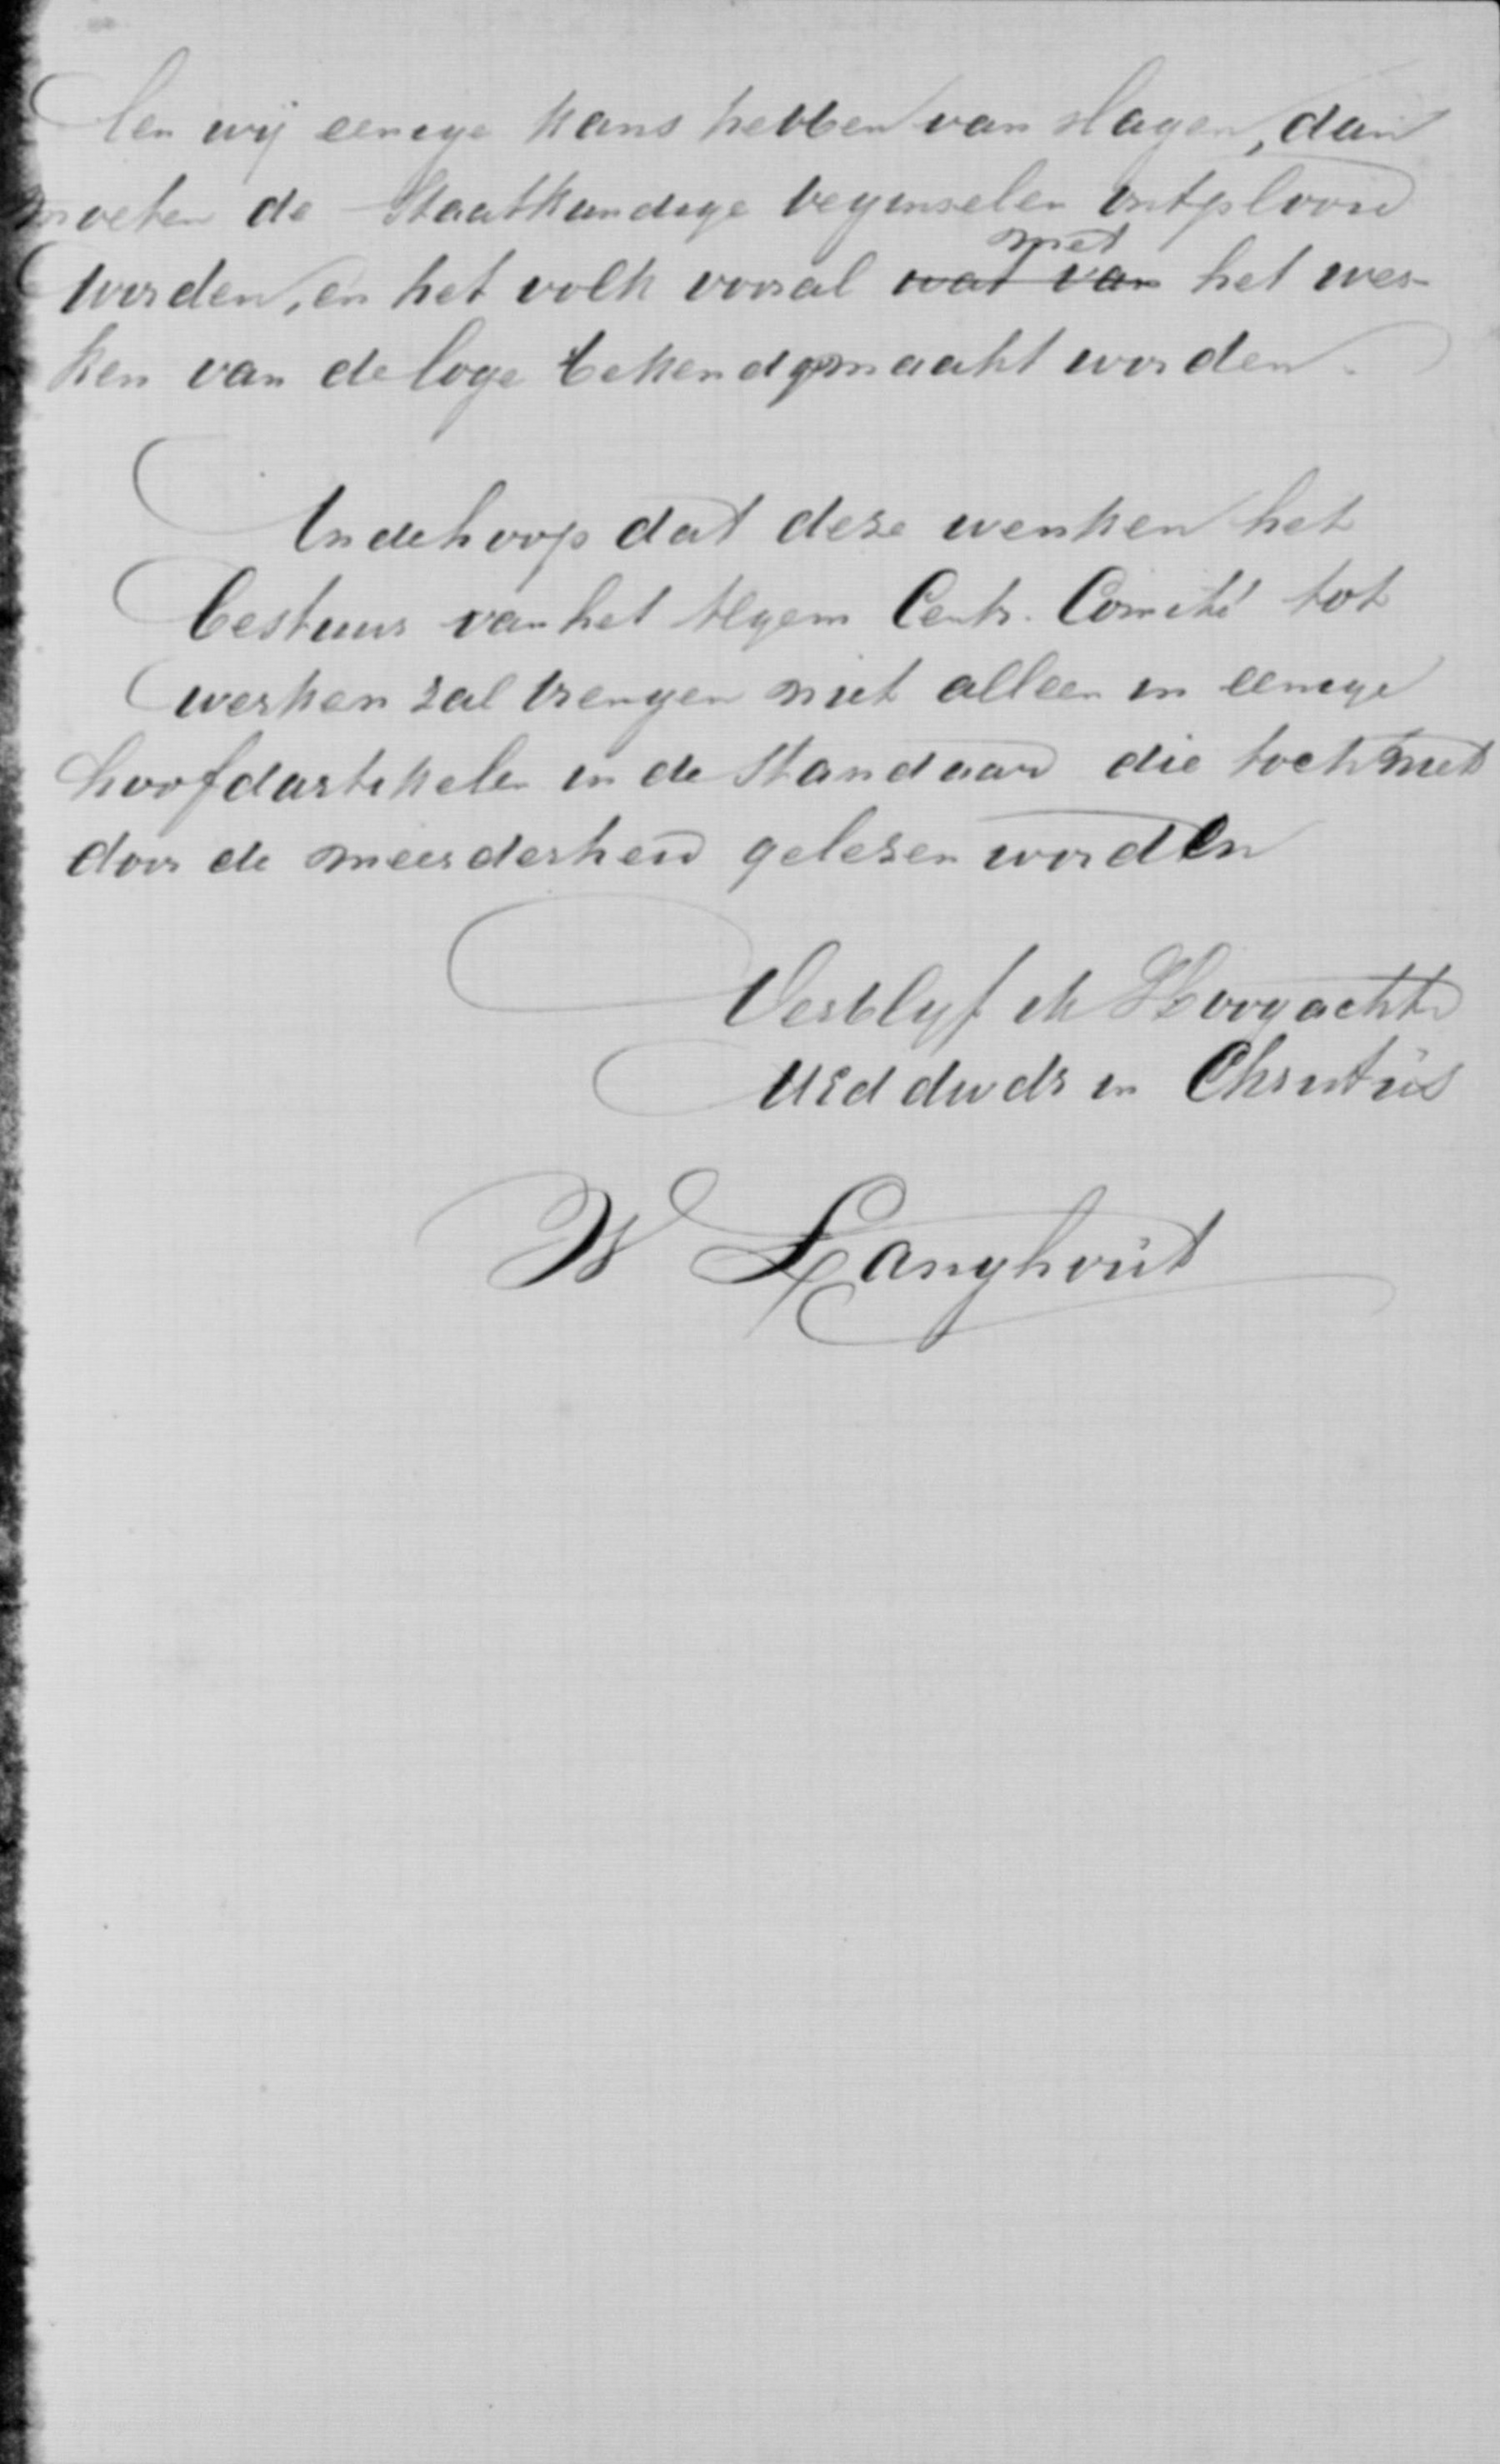 len wij eenige kans hebben van slagen, dan
moeten de Staatkundige beginselen ontplooid
worden, en het volk vooral met wat van het wer-
ken van de loge bekend gemaakt worden.
In de hoop dat deze wenken het
bestuur van het Algem Centr. Comité tot
werken zal brengen niet alleen in eenige
hoofdartikelen in de Standaard die toch niet
door de meerderheid gelezen worden
Verblijf ik Hoogacht
UEd dwdr in Christus
W Langhout